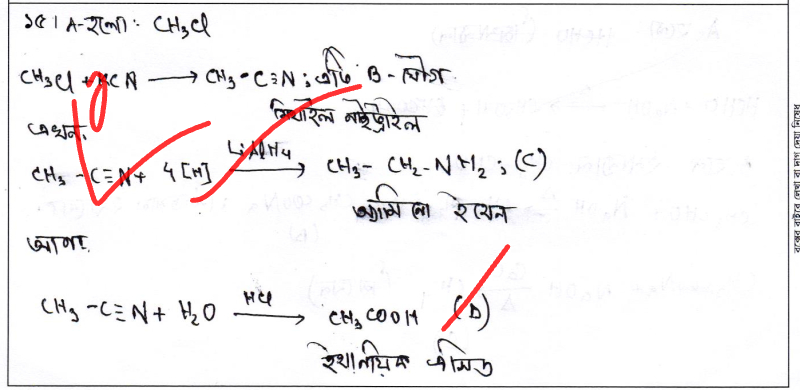 ১৫। A-হলো: CH₃Cl
CH₃Cl + KCN ⟶ CH₃-C≡N ; এটি B-যৌগ
মিথাইল নাইট্রাইল
এখন,
CH₃-C≡N + 4[H] LiAlH₄⟶ CH₃-CH₂-NH₂ ; (C)
অ্যামিনো ইথেন
আবার,
CH₃-C≡N + H₂O HCl⟶ CH₃COOH (D)
ইথানয়িক এসিড